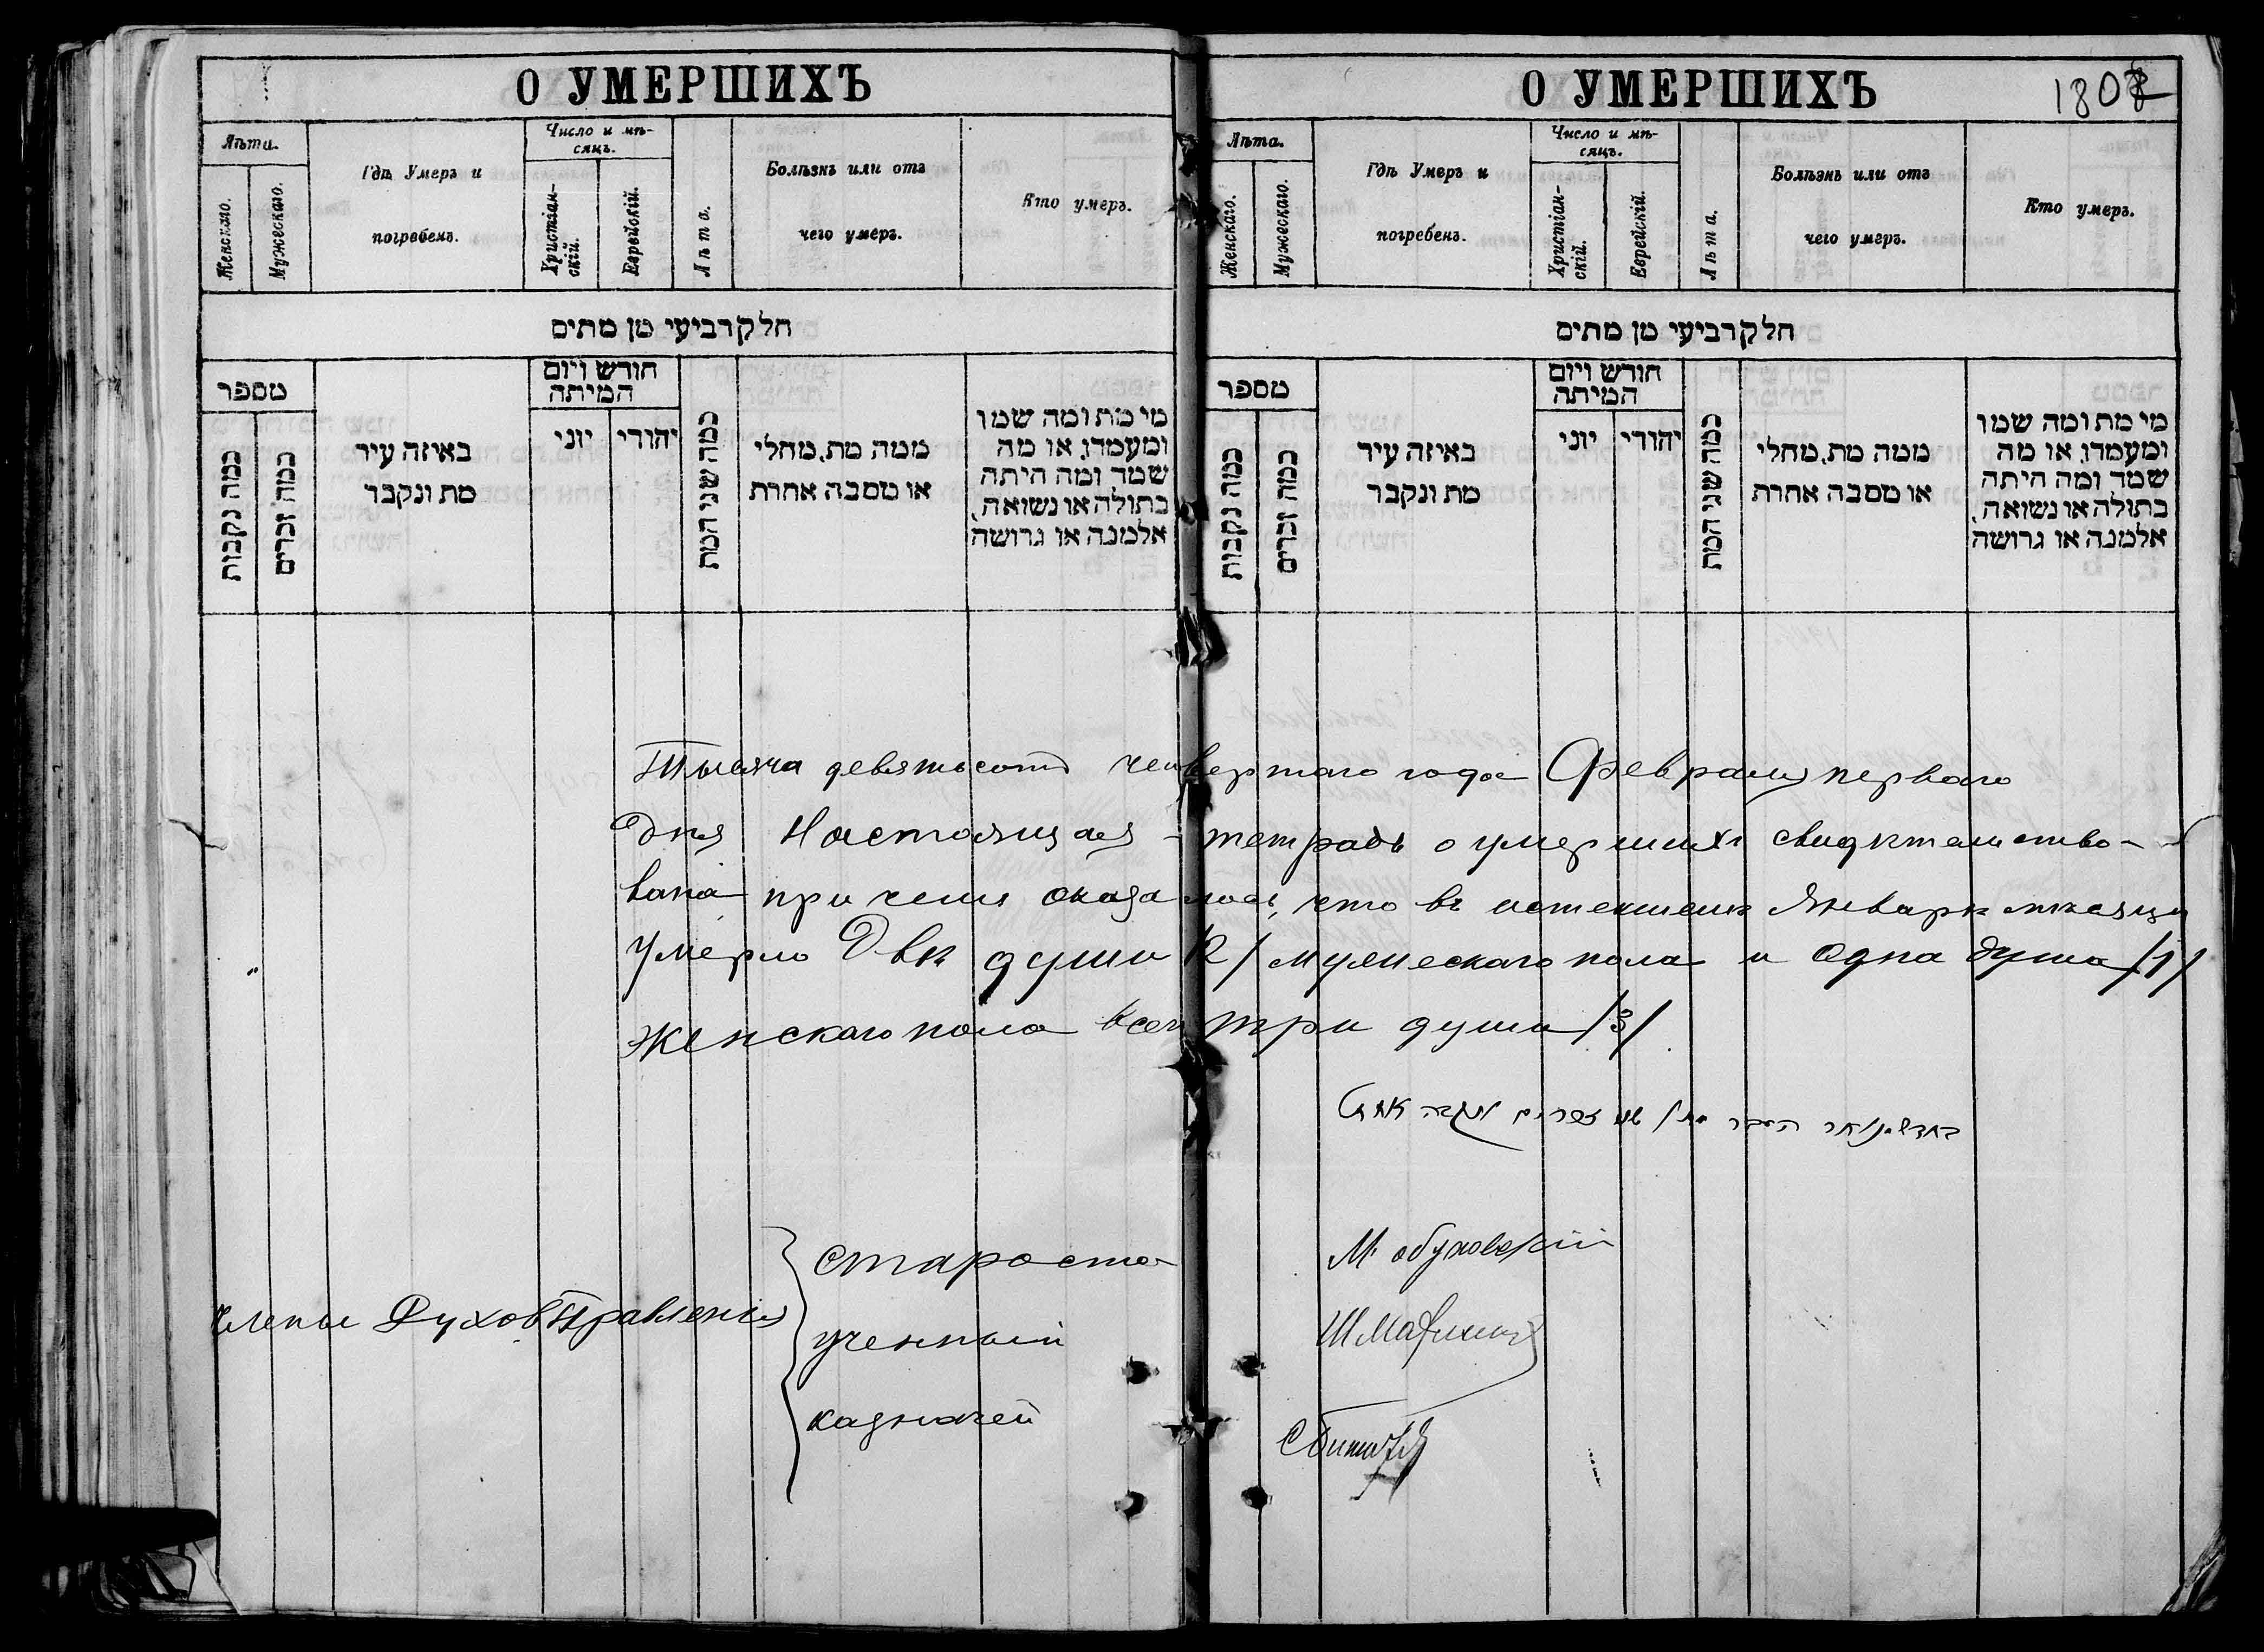 О УМЕРШИХЪ
Лѣта.
Женскаго.
Мужескаго.
Гдѣ Умеръ и
погребенъ.
Число и мѣ-
сяцъ.
Христіан-
скій.
Еврейскій.
Лѣта.
Болѣзнь или отъ
чего умеръ.
Кто умеръ.
חלק רביעי מן מתים
מספר
כמה נקבות
כמה זכרים
באיזה עיר
מת ונקבר
חודש ויום
המיתה
יוני
יהודי
כמה שני המת
ממה מת, מחלי
או מסבה אחרת
מי מת ומה שמו
ומעמדו, או מה
שמד ומה היתה
בתולה או נשואה,
אלמנה או גרושה
О УМЕРШИХЪ
180
Лѣта.
Женскаго.
Мужескаго.
Гдѣ Умеръ и
погребенъ.
Число и мѣ-
сяцъ.
Христіан-
скій.
Еврейскій.
Лѣта.
Болѣзнь или отъ
чего умеръ.
Кто умеръ.
חלק רביעי מן מתים
מספר
כמה נקבות
כמה זכרים
באיזה עיר
מת ונקבר
חודש ויום
המיתה
יוני
יהודי
כמה שני המת
ממה מת, מחלי
או מסבה אחרת
מי מת ומה שמו
ומעמדו, או מה
שמד ומה היתה
בתולה או נשואה,
אלמנה או גרושה
Тысяча девятьсотъ четвертаго года Февраля перваго
дня Настоящая тетрадь о умершихъ свидѣтельство-
вана при чемъ оказалось, что въ истекшемъ Январѣ мѣсяцѣ
умерло Двѣ души /2/ мужескаго пола и одна душа /1/
женскаго пола всего три души /3/
מתו שני זכרים ונקבה אחת
Члены Духов Правленія
староста
ученный
казначей
М. Обуховскій